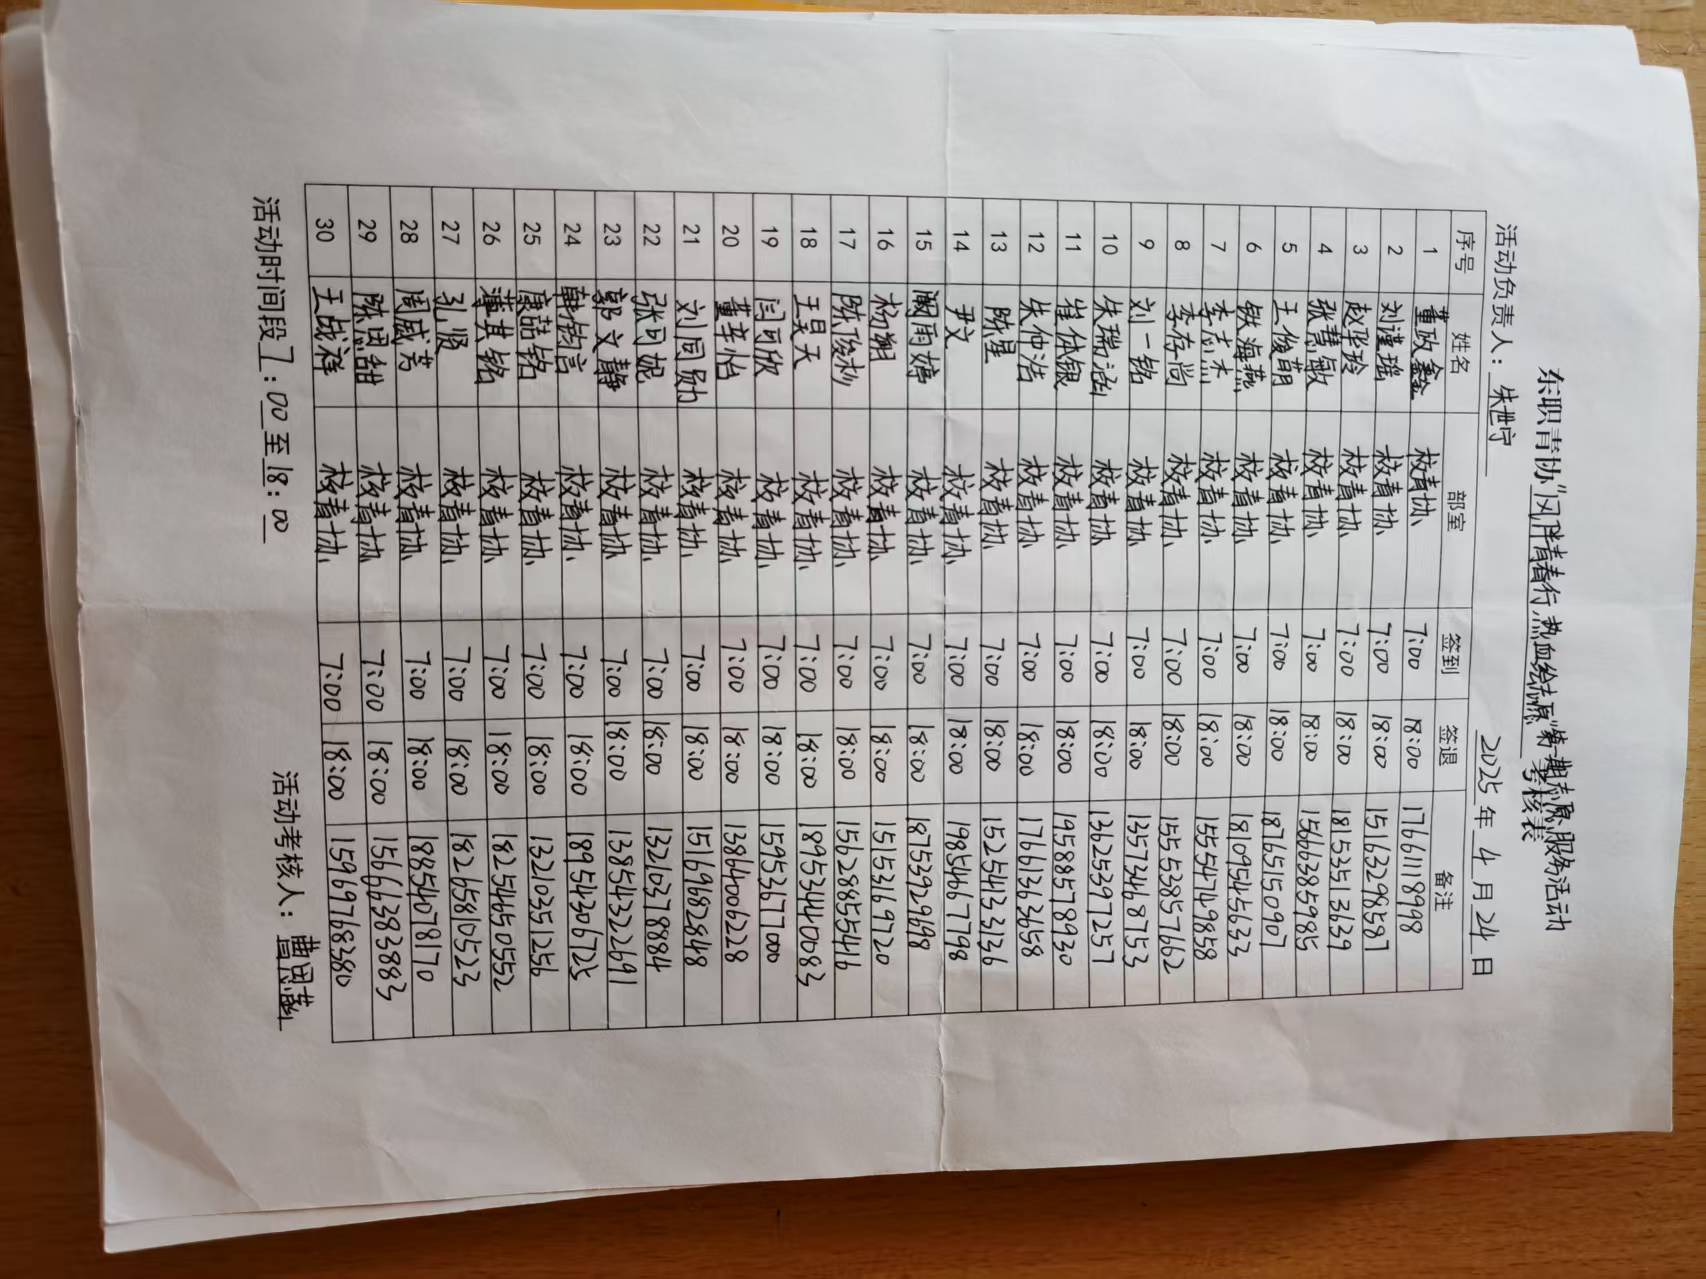 东职青协“风伴青春行 热血绘志愿”第一期志愿服务活动
考核表
活动负责人：朱世宁 2025年4月24日
序号 姓名 部室 签到 签退 备注
1 董政鑫 校青协 7:00 18:00 17661118998
2 刘谨瑶 校青协 7:00 18:00 15163298587
3 赵张玲 校青协 7:00 18:00 18153513639
4 张慧敏 校青协 7:00 18:00 15663859985
5 王俊萌 校青协 7:00 18:00 18765150907
6 铁海燕 校青协 7:00 18:00 18109545633
7 李志杰 校青协 7:00 18:00 15554749858
8 李存尚 校青协 7:00 18:00 15553857662
9 刘一铭 校青协 7:00 18:00 13573468753
10 朱瑞涵 校青协 7:00 18:00 13625397257
11 崔体银 校青协 7:00 18:00 19588578930
12 朱仲浩 校青协 7:00 18:00 17661363658
13 陈星 校青协 7:00 18:00 15254323136
14 尹文 校青协 7:00 18:00 19854667798
15 阚雨婷 校青协 7:00 18:00 18753929698
16 杨朔 校青协 7:00 18:00 15153169720
17 陈璇杉 校青协 7:00 18:00 15628855416
18 王昊天 校青协 7:00 18:00 18953440083
19 闫可欣 校青协 7:00 18:00 15953677000
20 董莘怡 校青协 7:00 18:00 13864006228
21 刘同勋 校青协 7:00 18:00 15169682848
22 张可妮 校青协 7:00 18:00 13263078884
23 郭文静 校青协 7:00 18:00 13854322691
24 韩韵言 校青协 7:00 18:00 18954306725
25 康喆铭 校青协 7:00 18:00 13210351256
26 薄其铭 校青协 7:00 18:00 18254650552
27 孔贤 校青协 7:00 18:00 18265810523
28 周威芳 校青协 7:00 18:00 18854078170
29 陈思甜 校青协 7:00 18:00 15666383883
30 王战祥 校青协 7:00 18:00 15969768380
活动时间段7:00至18:00 活动考核人：曹恩燕